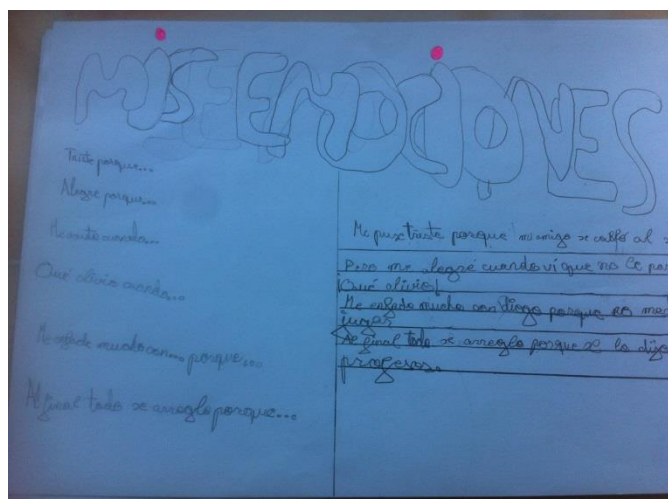 MIS EMOCIONES
Triste porque...
Alegre porque...
Me asusto cuando...
Qué alivio cuando...
Me enfado mucho con... porque...
Al final todo se arreglo porque...
Me puse triste porque mi amigo se
Pero me alegré cuando vi que no le
¡Qué alivio!
Me enfado mucho con diego porque no me
jugar
Al final todo se arreglo porque se lo dije
profesor.